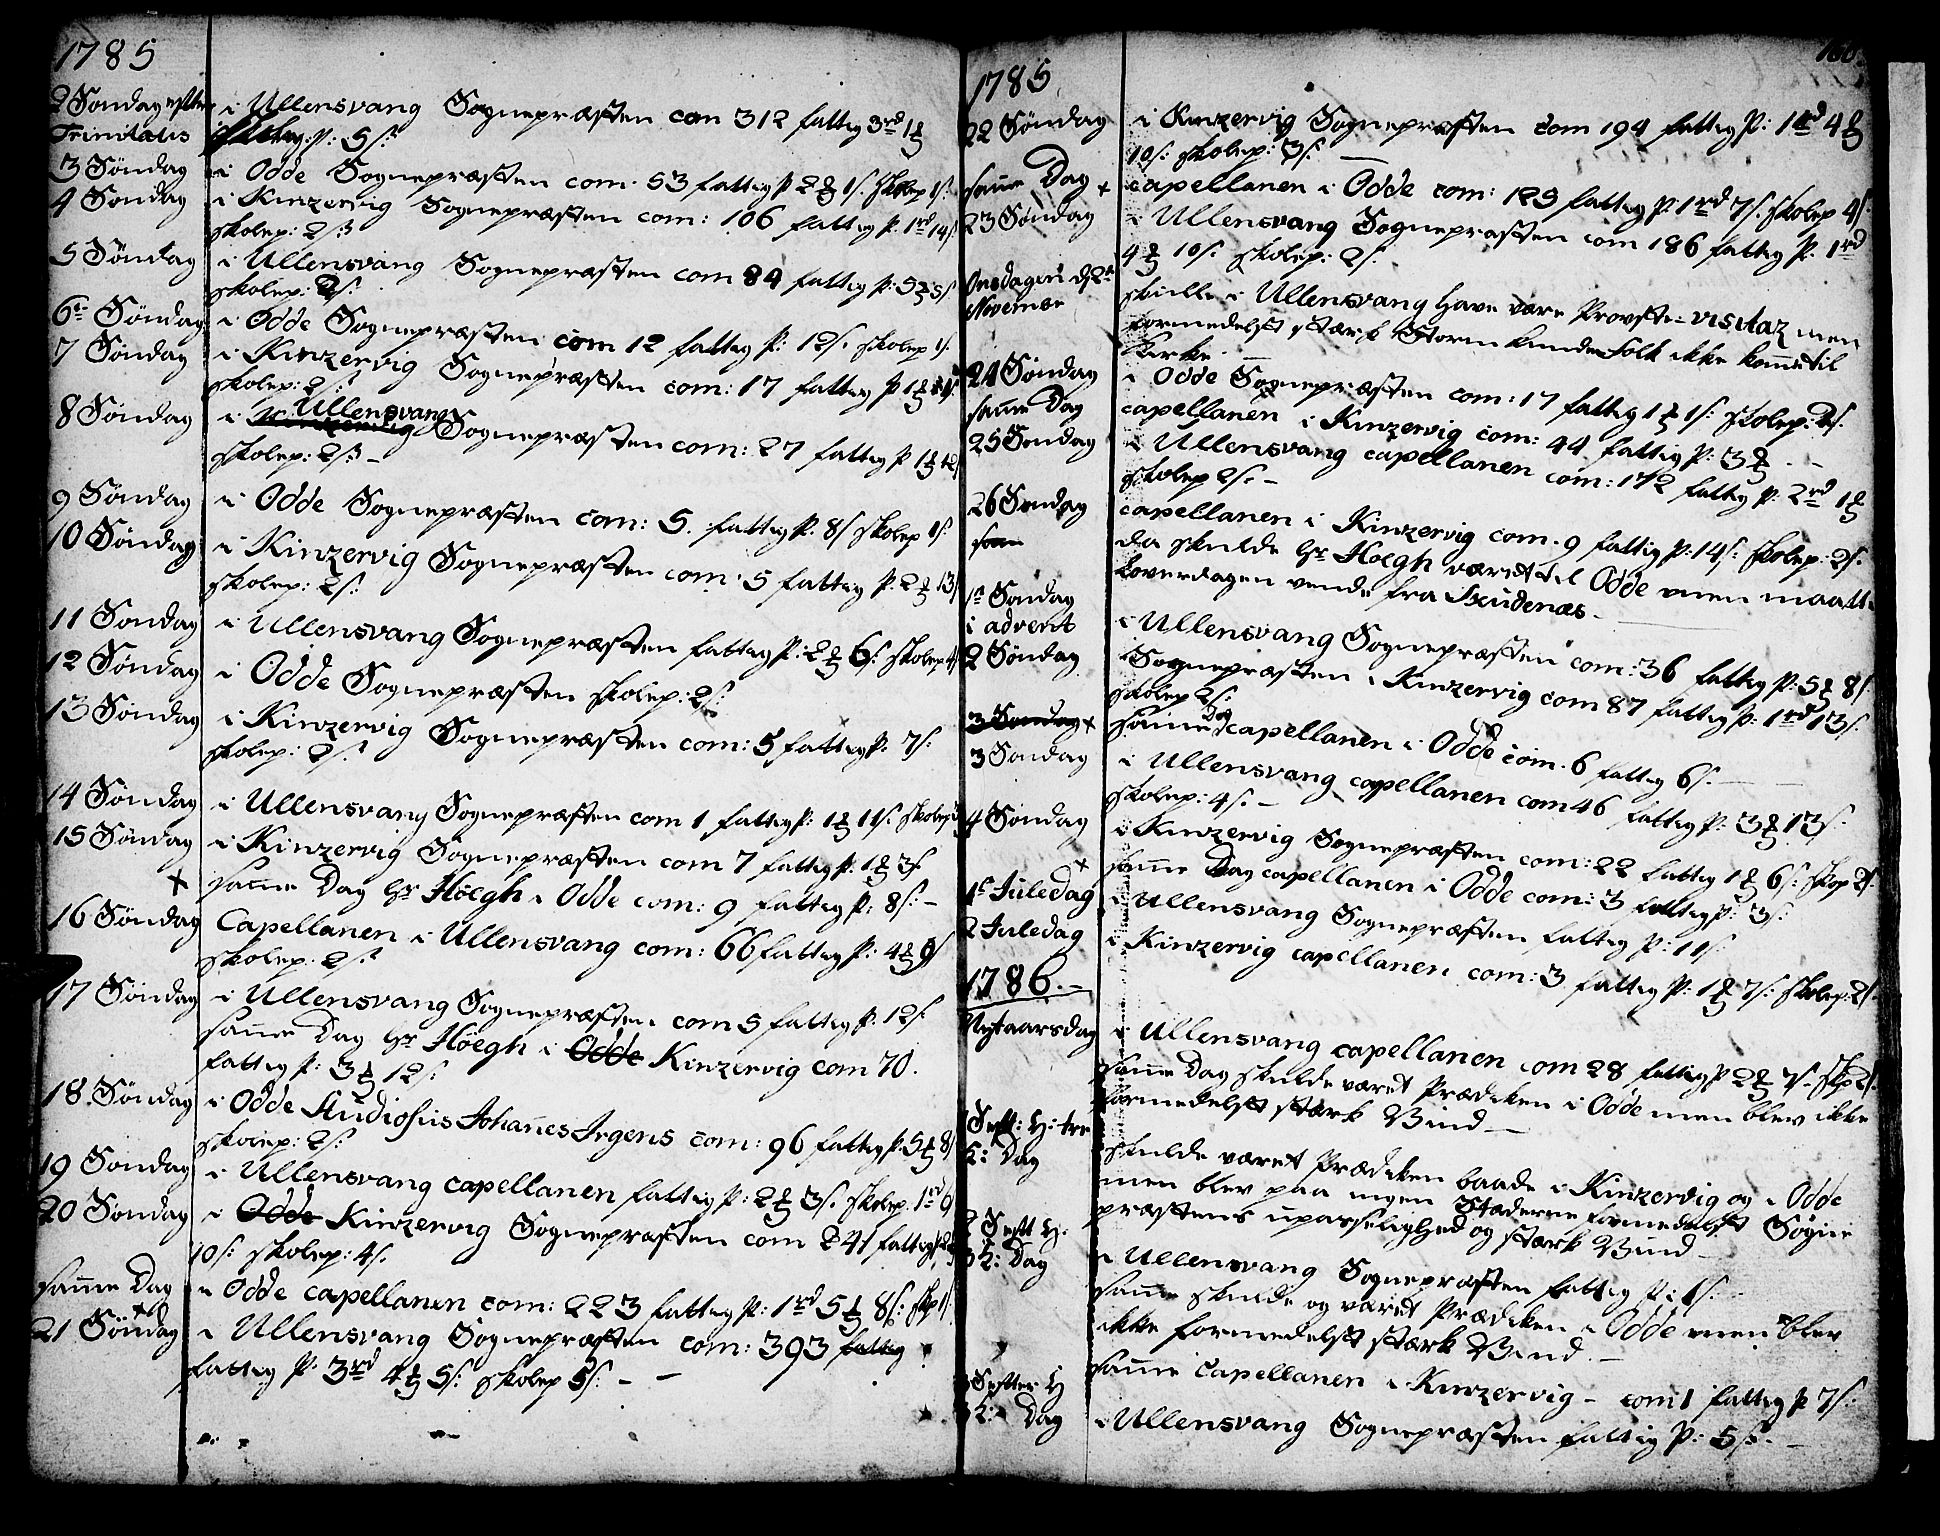 1785
2 Søndag efter
Trinitatis
i Ullensvang Sognepræsten com 312 fattig 3rd 1
P: 5s:
3 Søndag
i Odde Sognepræsten com. 53 fattig P 2 1s. skolep 1s:
4 Søndag
i Kinzervig Sognepræsten com: 106 fattig P. 1rd 14s
skolep: 2s:
5 Søndag
i Ullensvang Sognepræsten com 84 fattig P: 5 5s
skolep: 2s:
6te Søndag
i Odde Sognepræsten com 12 fattig P: 12s. skolep 1s.
7 Søndag
i Kinzervig Sognepræsten com: 17 fattig P 1
skolep: 2s:
8 Søndag
i Kinzervig Ullensvang Sognepræsten com: 27 fattig P 1 12s
skolep: 2s: –
9 Søndag
i Odde Sognepræsten com: 5. fattig P. 8s skolep 1s.
10 Søndag
i Kinzervig Sognepræsten com: 5 fattig P: 2 13s
skolep: 2s:
11 Søndag
i Ullensvang Sognepræsten fattig P: 2 6s: skolep 4s
12 Søndag
i Odde Sognepræsten skolep: 2s:
13 Søndag
i Kinzervig Sognepræsten com: 5 fattig P: 7s:
skolep: 2s:
14 Søndag
i Ullensvang Sognepræsten com 1 fattig P: 1 11s: skolep
15 Søndag
i Kinzervig Sognepræsten com 7 fattig P: 1 3s
+
samme Dag Hr Høegh i Odde com: 9 fattig P: 8s: –
16 Søndag
Capellanen i Ullensvang com: 66 fattig P: 4 9s
skolep: 2s:
17 Søndag
i Ullensvang Sognepræsten com 5 fattig P: 12s:
samme Dag Hr Høegh i Odde Kinzervig com 70.
fattig P: 3 12s:
18 Søndag
i Odde Studiosus Johannes Irgens com: 96 fattig P: 5 8s
skolep: 2s:
19 Søndag
i Ullensvang capellanen fattig P: 2 3s: skolep. 1rd 9
20 Søndag
i Odde Kinzervig Sognepræsten com 241 fattig P 2
10s: skolep: 4s:
samme Dag
i Odde capellanen com: 223 fattig P: 1rd 5 8s: skp 1s.
+
21 Søndag
i Ullensvang Sognepræsten com: 393 fattig
fattig P: 3rd 4 5s: skolep 5s: –
1785
22 Søndag
i Kinzervig Sognepræsten com 194 fattig P: 1rd 4
10s: skolep: 3s:
samme Dag +
capellanen i Odde com: 123 fattig P: 1rd 7s. skolep 4s.
23 Søndag
i Ullensvang Sognepræsten com 186 fattig P. 1rd
4 10s: skolep: 2s:
Onsdagen d 2den
November
skulle i Ullensvang have være Provste-visitaz men
formedelst stærk Storm kunde folk ikke komme til
Kirke. –
24 Søndag
i Odde Sognepræsten com: 17 fattig 1 1s: skolep: 2s.
samme Dag
capellanen i Kinzervig com: 44 fattig P: 3 –
25 Søndag
i Ullensvang capellanen com: 172 fattig P: 2rd 1
skolep 2s: –
26 Søndag
capellanen i Kinzervig com. 9 fattig P: 14s: skolep: 2s.
sam
da skulde Hr Høegh været til Odde men maatte
Løverdagen vende fra Skudenæs.
1ste Søndag
i advent
i Ullensvang Sognepræsten com: 36 fattig P: 5 8s
2 Søndag
Sognepræsten i Kinzervig com 87 fattig P: 1rd 13s.
skolep 2s:
3 Søndag +
samme Dag capellanen i Odde com. 6 fattig 6s:
3 Søndag
i Ullensvang capellanen com 46 fattig P: 3 13s:
skolep: 4s: –
4 Søndag
i Kinzervig Sognepræsten com: 22 fattig 1 6s: skp 2s.
+
samme Dag capellanen i Odde com: 3 fattig P: 3s:
1ste Juledag
i Ullensvang Sognepræsten fattig P: 11s:
2 Juledag
i Kinzervig capellanen com: 3 fattig P: 1 7s: skolep: 2s.
1786. –
Nytaarsdag
i Ullensvang capellanen com 28 fattig P 2 7s – skp 2s.
samme Dag skulde været Prædiken i Odde men blev ikke
formedelst stærk Vind –
1 Sønt: H: tre
K: Dag
skulde været Prædiken baade i Kinzervig og i Odde
men blev paa ingen Stæderne formedelst Sogne
præstens upasselighed og stærk Vind –
2 Sønt H:
3 K: Dag
i Ullensvang Sognepræsten fattig P: 1s:
samme skulde og været Prædiken i Odde men blev
ikke formedelst stærk Vind –
samme Capellanen i Kinzervig – com 1 fattig P 7s:
3 Søn efter H
3 K: Dag
i Ullensvang Sognepræsten fattig P: 5s: –